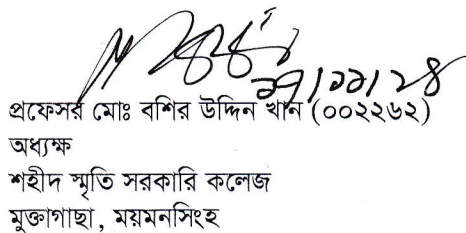 ২৭/১১/২৪
প্রফেসর মোঃ বশির উদ্দিন খান (০০২২৬২)
অধ্যক্ষ
শহীদ স্মৃতি সরকারি কলেজ
মুক্তাগাছা, ময়মনসিংহ